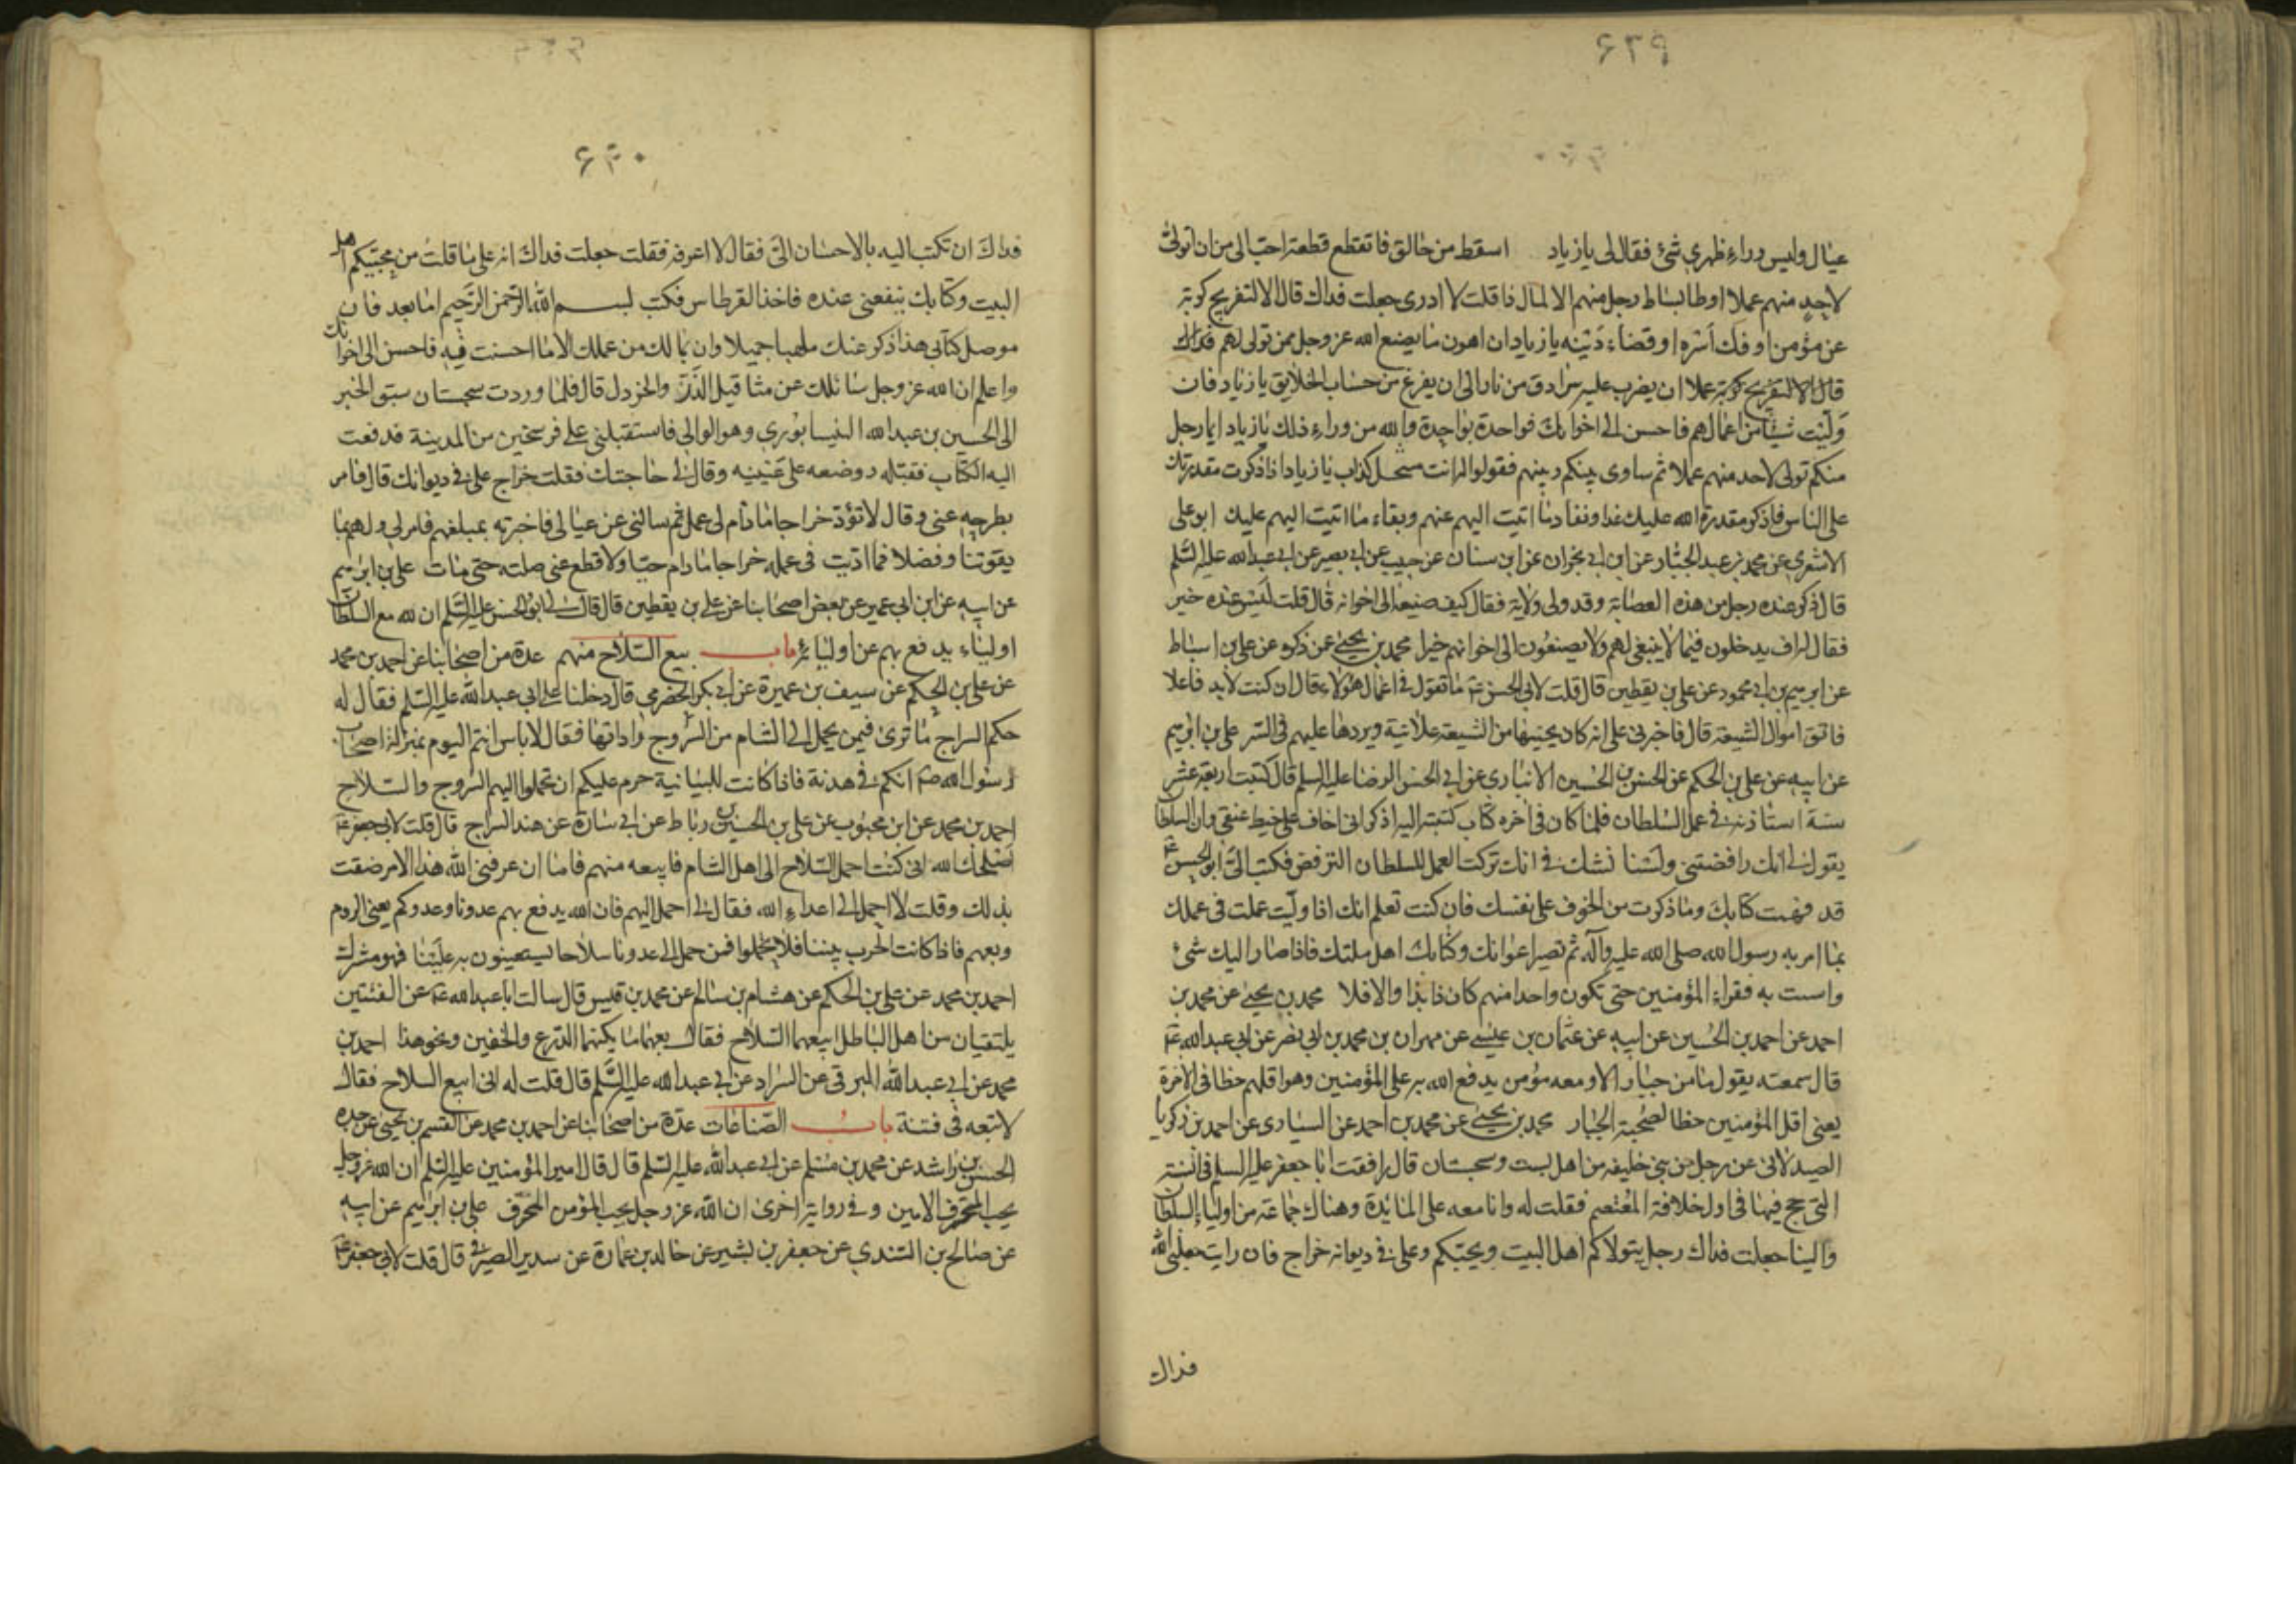 ٤٢٩
عيال وليس وراء ظهري شئ فقال لى يا زياد اسقط من حالق فاتقطع قطعة احبّ الى من ان اتولى
لاحدٍ منهم عملا او طا بساط رجل منهم الا لماذا قلت لا ادرى جعلت فداك قال الا لتفريج كربة
عن مؤمن او فك اسره او قضاء دينه يا زياد ان اهون ما يصنع الله عز وجل بمن تولى لهم
عملا ان يضرب عليه سرادق من نار الى ان يفرغ من حساب الخلايق يا زياد فان
وليت شيئا من اعمالهم فاحسن الى اخوانك فواحدة بواحدة والله من وراء ذلك يا زياد ايما رجل
منكم تولى لاحد منهم عملا ثم ساوى بينكم وبينهم فقولوا له انت منتحل كذاب يا زياد اذا ذكرت مقدرتك
على الناس فاذكر مقدرة الله عليك غدا ونفاد ما اتيت اليهم عنهم وبقاء ما اتيت اليهم عليك ابو على
الاشعرى عن محمد بن عبد الجبار عن ابن ابى نجران عن ابن سنان عن حبيب عن ابى بصير عن ابى عبد الله عليه السلم
قال ذكر عنده رجل من هذه العصابة وقد ولى ولاية فقال كيف صنيعه الى اخوانه قال قلت ليس عنده خير
فقال اف يدخلون فيما لا ينبغى لهم ولا يصنعون الى اخوانهم خيرا محمد بن يحيى عمن ذكره عن على بن اسباط
عن ابرهيم بن ابى محمود عن على بن يقطين قال قلت لابى الحسن ع ما تقول فى اعمال هؤلاء قال ان كنت لابد فاعلا
فاتق اموال الشيعة قال فاخبرنى على انه كان يجبيها من الشيعة علانية ويردها عليهم فى السر على بن ابرهيم
عن ابيه عن على بن الحكم عن الحسن بن الحسين الانبارى عن ابى الحسن الرضا عليه السلم قال كتبت اربعة عشر
سنة استاذنه فى عمل السلطان فلما كان فى اخره كتاب كتبته اليه اذكر انى اخاف على خيط عنقى وان السلطان
يقول لى انك رافضى ولسنا نشك فى انك تركت العمل للسلطان للترفض فكتب الىّ ابو الحسن ع
قد فهمت كتابك وما ذكرت من الخوف على نفسك فان كنت تعلم انك اذا وليت عملت فى عملك
بما امر به رسول الله صلى الله عليه وآله ثم تصير اعوانك وكتابك اهل ملتك فاذا صار اليك شئ
واسيت به فقراء المؤمنين حتى تكون واحدا منهم كان ذا بذا والا فلا محمد بن يحيى عن محمد بن
احمد عن احمد بن الحسين عن ابيه عن عثمان بن عيسى عن مهران بن محمد بن ابى نصر عن ابى عبد الله ع
قال سمعته يقول ما من جبار الا ومعه مؤمن يدفع الله به على المؤمنين وهو اقلهم حظا فى الاخرة
يعنى اقل المؤمنين حظا لصحبة الجبار محمد بن يحيى عن محمد بن احمد عن السيارى عن احمد بن زكريا
الصيدلانى عن رجل من بنى حنيفه من اهل بست وسجستان قال رافقت ابا جعفر عليه السلم فى السنة
التى حج فيها فى اول خلافة المعتصم فقلت له وانا معه على المائدة وهناك جماعة من اولياء السلطان
والينا جعلت فداك رجل يتولاكم اهل البيت ويحبكم وعلى فى ديوانه خراج فان رايت جعلنى الله
فداك
٤٣٠
فداك ان تكتب اليه بالاحسان الىّ فقال لا اعرفه فقلت جعلت فداك انه على ما قلت من محبّيكم اهل
البيت وكتابك ينفعنى عنده فاخذ القرطاس فكتب بسم الله الرحمن الرحيم اما بعد فان
موصل كتابى هذا ذكر عنك مذهبا جميلا وان مالك من عملك الا ما احسنت فيه فاحسن الى اخوانك
واعلم ان الله عز وجل سائلك عن مثاقيل الذر والخردل قال فلما وردت سجستان سبق الخبر
الى الحسين بن عبد الله النيسابورى وهو الوالى فاستقبلنى على فرسخين من المدينة فدفعت
اليه الكتاب فقبّله ووضعه على عينيه وقال لى حاجتك فقلت خراج علىّ فى ديوانك قال فامر
بطرحه عنى وقال لا تؤد خراجا ما دام لى عمل ثم سالنى عن عيالى فاخبرته بمبلغهم فامر لى ولهم بما
يقوتنا وفضلا فما اديت فى عمله خراجا ما دام حيا ولا قطع عنى صلته حتى مات على بن ابرهيم
عن ابيه عن ابن ابى عمير عن بعض اصحابنا عن على بن يقطين قال قال لى ابو الحسن عليه السلم ان لله مع السلطان
اولياء يدفع بهم عن اوليائه باب بيع السلاح منهم عدة من اصحابنا عن احمد بن محمد
عن على بن الحكم عن سيف بن عميرة عن ابى بكر الحضرمى قال دخلنا على ابى عبد الله عليه السلم فقال له
حكم السراج ما ترى فيمن يحمل الى الشام من السروج واداتها فقال لا باس انتم اليوم بمنزلة اصحاب
رسول الله ص انكم فى هدنة فاذا كانت المبايتة حرم عليكم ان تحملوا اليهم السروج والسلاح
احمد بن محمد عن ابن محبوب عن على بن الحسن بن رباط عن ابى سارة عن هند السراج قال قلت لابى جعفر ع
اصلحك الله انى كنت احمل السلاح الى اهل الشام فابيعه منهم فاما ان عرفنى الله هذا الامر ضقت
بذلك وقلت لا احمل الى اعداء الله فقال لى احمل اليهم فان الله يدفع بهم عدونا وعدوكم يعنى الروم
وبعهم فاذا كانت الحرب بيننا فلا تحملوا فمن حمل الى عدونا سلاحا يستعينون به علينا فهو مشرك
احمد بن محمد عن على بن الحكم عن هشام بن سالم عن محمد بن قيس قال سالت ابا عبد الله ع عن الفئتين
يلتقيان من اهل الباطل ابيعهما السلاح فقال بعهما ما يكنهما الدرع والخفين ونحو هذا احمد بن
محمد عن ابى عبد الله البرقى عن السراد عن ابى عبد الله عليه السلم قال قلت له انى ابيع السلاح فقال
لا تبعه فى فتنة باب الصناعات عدة من اصحابنا عن احمد بن محمد عن القسم بن يحيى عن جده
الحسن بن راشد عن محمد بن مسلم عن ابى عبد الله عليه السلم قال قال امير المؤمنين عليه السلم ان الله عز وجل
يحب المحترف الامين وفى رواية اخرى ان الله عز وجل يحب المؤمن المحترف على بن ابرهيم عن ابيه
عن صالح بن السندى عن جعفر بن بشير عن خالد بن عمارة عن سدير الصيرفى قال قلت لابى جعفر ع